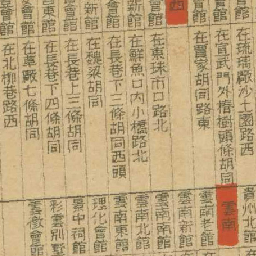 在琉璃廠沙土園路西
在宣武門外椿樹頭條胡同
在賈家胡同路東
在東珠市口路北
在鮮魚口內小橋路北
在長巷下二條胡同西頭
新館
在魏染胡同
會館
在長巷上三條胡同
會館
在長巷下四條胡同
會館
在草廠七條胡同
在北柳巷路西
貴州北館
雲南
雲南老館
雲南新館
雲南南館
雲南北館
雲南東館
理化會館
中祠館
彩雲別墅
會館